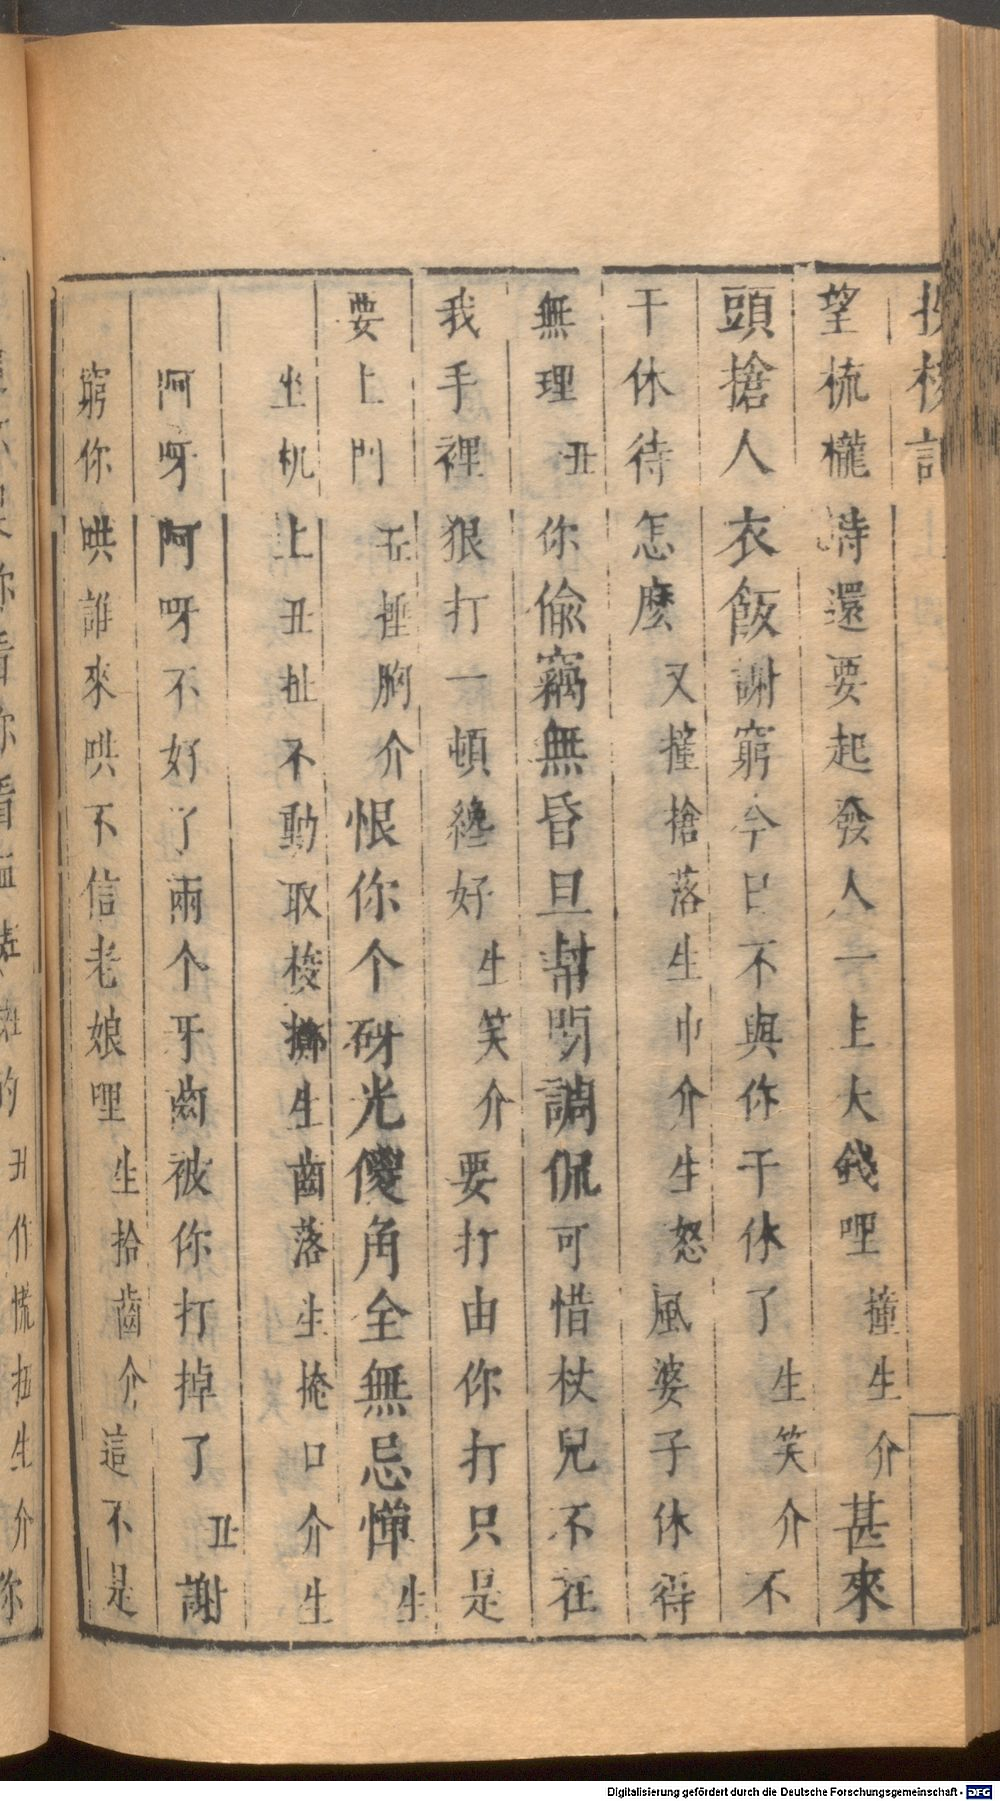 投梭記
望梳櫳時還要起發人一上大錢哩撞生介甚來
頭搶人衣飯謝窮今日不與你干休了生笑介不
干休待怎麽又撞搶落生巾介生怒風婆子休得
無理丑你偸竊無昏旦幇閒調侃可惜杖兒不在
我手裡狠打一頓纔好生笑介要打由你打只是
要上門丑捶胸介恨你个砑光傻角全無忌憚生
坐机上丑扯不動取梭擲生齒落生掩口介生
阿呀阿呀不好了兩个牙齒被你打掉了丑謝
窮你哄誰來哄不信老娘哩生拾齒介這不是
丑作慌扭生介你
Digitalisierung gefördert durch die Deutsche Forschungsgemeinschaft - DFG